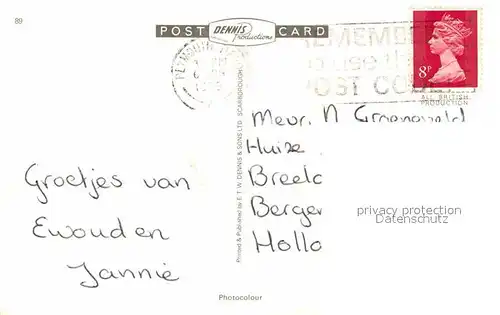 89
POST DENNIS Productions CARD
REMEMBER
to use the
POST CODE
8P
ALL BRITISH
PRODUCTION
PLYMOUTH
Groetjes van
Ewoud en
Jannie
Printed & Published by E.T.W. DENNIS & SONS LTD. SCARBOROUGH
Mevr. N Groeneveld
Huize
Breelo
Berger
Hollo
privacy protection
Datenschutz
Photocolour